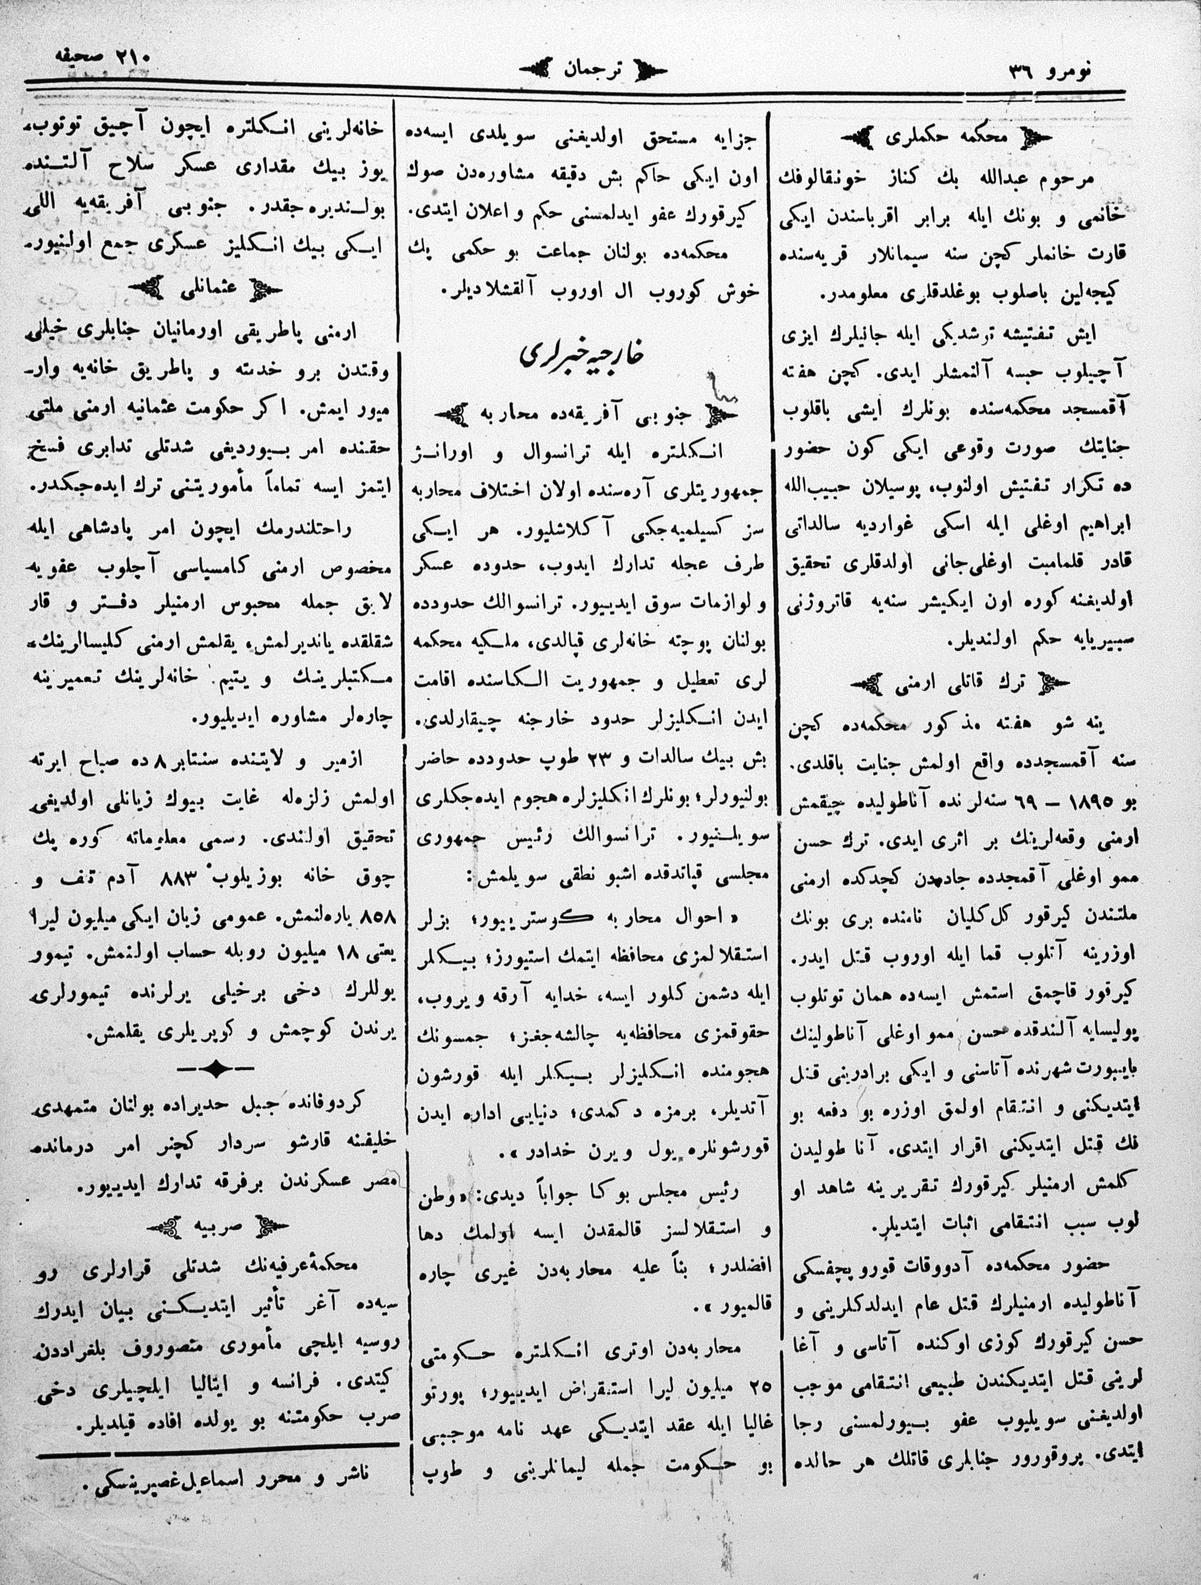 نومرو ٣٦
ترجمان
٢١٠ صحيفه
محكمه حكملری
مرحوم عبدالله بك كناز خونقالوفك
خانمی و بونك ايله برابر اقرباسندن ايكی
قارت خانملر كچن سنه سيمانلار قريه‌سنده
كيجه‌لين باصلوب بوغلدقلری معلومدر.
ايش تفتيشه ترشديكی ايله جانيلرك ايزی
آچيلوب حبسه آلنمشلر ايدی. كچن هفته
آقمسجد محكمه‌سنده بونلرك ايشی باقلوب
جنايتك صورت وقوعی ايكی كون حضور
ده تكرار تفتيش اولنوب، پوسيلان حبيب‌الله
ابراهيم اوغلی ايله اسكی غوارديه سالداتی
قادر قلمامبت اوغلی جانی اولدقلری تحقيق
اولديغنه كوره اون ايكيشر سنه‌يه قاتروژنی
سيبيريايه حكم اولنديلر.
ترك قاتلی ارمنی
ينه شو هفته مذكور محكمه‌ده كچن
سنه آقمسجدده واقع اولمش جنايت باقلدی.
بو ١٨٩٥ – ٦٩ سنه‌لرنده آناطوليده چيقمش
ارمنی وقعه‌لرينك بر اثری ايدی. ترك حسن
ممو اوغلی آقمجدده جاده‌دن كچدكده ارمنی
ملتندن كيرقور كل‌كليان نامنده بری بونك
اوزرينه آتلوب قما ايله اوروب قتل ايدر.
كيرقور قاچمق استمش ايسه‌ده همان توتلوب
پوليسايه آلندقده حسن ممو اوغلی آناطولينك
بايبورت شهرنده آتاسنی و ايكی برادرينی قتل
ايتديكنی و انتقام اولمق اوزره بو دفعه بو
نك قتل ايتديكنی اقرار ايتدی. آناطوليدن
كلمش ارمنيلر كيرقورك تقريرينه شاهد او
لوب سبب انتقامی اثبات ايتديلر.
حضور محكمه‌ده آدووقات قوروپچفسكی
آناطوليده ارمنيلرك قتل عام ايدلدكلرينی و
حسن كيرقورك كوزی اوكنده آتاسی و آغا
لرينی قتل ايتديكندن طبيعی انتقامی موجب
اولديغنی سويليوب عفو بيورلمسنی رجا
ايتدی. پروقورور جنابلری قاتلك هر حالده
جزايه مستحق اولديغنی سويلدی ايسه‌ده
اون ايكی حاكم بش دقيقه مشاوره‌دن صوك
كيرقورك عفو ايدلمسنی حكم و اعلان ايتدی.
محكمه‌ده بولنان جماعت بو حكمی پك
خوش كوروب ال اوروب آلقشلاديلر.
خارجيه خبرلری
جنوبی آفريقه‌ده محاربه
انكلتره ايله ترانسوال و اورانژ
جمهوريتلری آره‌سنده اولان اختلاف محاربه
سز كسيلميه‌جكی آكلاشليور. هر ايكی
طرف عجله تدارك ايدوب، حدوده عسكر
و لوازمات سوق ايدييور. ترانسوالك حدودده
بولنان پوچته خانه‌لری قپالدی، ملكيه محكمه
لری تعطيل و جمهوريت الكاسنده اقامت
ايدن انكليزلر حدود خارجنه چيقارلدی.
بش بيك سالدات و ٢٣ طوپ حدودده حاضر
بولنيورلر؛ بونلرك انكليزلره هجوم ايده‌جكلری
سويلنيور. ترانسوالك رئيس جمهوری
مجلسی قپاندقده اشبو نطقی سويلمش:
«احوال محاربه كوسترييور؛ بزلر
استقلالمزی محافظه ايتمك استيورز؛ بيكلر
ايله دشمن كلور ايسه، خدايه آرقه ويروب،
حقوقمزی محافظه‌يه چالشه‌جغز؛ جمسونك
هجومنده انكليزلر بيكلر ايله قورشون
آتديلر، برمزه دكمدی؛ دنيايی اداره ايدن
قورشونلره يول ويرن خدادر».
رئيس مجلس بوكا جواباً ديدی: «وطن
و استقلالسز قالمقدن ايسه اولمك دها
افضلدر؛ بناً عليه محاربه‌دن غيری چاره
قالميور».
محاربه‌دن اوتری انكلتره حكومتی
٢٥ ميليون ليرا استقراض ايدييور؛ پورتو
غاليا ايله عقد ايتديكی عهد نامه موجبی
بو حكومت جمله ليمانلرينی و طوپ
خانه‌لرينی انكلتره ايچون آچيق توتوب،
يوز بيك مقداری عسكر سلاح آلتنده
بولنديره‌جقدر. جنوبی آفريقه‌يه اللی
ايكی بيك انكليز عسكری جمع اولنيور.
عثمانلی
ارمنی پاطريقی اورمانيان جنابلری خيلی
وقتدن برو خدمته و پاطريق خانه‌يه وار
ميور ايمش. اكر حكومت عثمانيه ارمنی ملتی
حقنده امر بيورديغی شدتلی تدابری فسخ
ايتمز ايسه تماماً مأموريتنی ترك ايده‌جكدر.
راحتلندرمك ايچون امر پادشاهی ايله
مخصوص ارمنی كامسياسی آچلوب عفويه
لايق جمله محبوس ارمنيلر دفتر و قار
شقلقده يانديرلمش، يقلمش ارمنی كليسالرينك،
مكتبلرينك و يتيم خانه‌لرينك تعميرينه
چاره‌لر مشاوره ايديليور.
ازمير ولايتنده سنتابر ٨ ده صباح ايرته
اولمش زلزله غايت بيوك زيانلی اولديغی
تحقيق اولندی. رسمی معلوماته كوره پك
چوق خانه بوزيلوب ٨٨٣ آدم تلف و
٨٥٨ ياره‌لنمش. عمومی زيان ايكی ميليون ليرا
يعنی ١٨ ميليون روبله حساب اولنمش. تيمور
يوللرك دخی برخيلی يرلرنده تيمورلری
يرندن كوچمش و كوپريلری يقلمش.
كردوفانده جبل حديراده بولنان متمهدی
خليفه‌نه قارشو سردار كچنر امر درمانده
مصر عسكرندن برفرقه تدارك ايدييور.
صربيه
محكمۀ عرفيه‌نك شدتلی قرارلری رو
سيه‌ده آغر تأثير ايتديكنی بيان ايدرك
روسيه ايلچی مأموری متصوروف بلغراددن
كيتدی. فرانسه و ايتاليا ايلچيلری دخی
صرب حكومتنه بو يولده افاده قيلديلر.
ناشر و محرر اسماعيل غصپرينسكی.